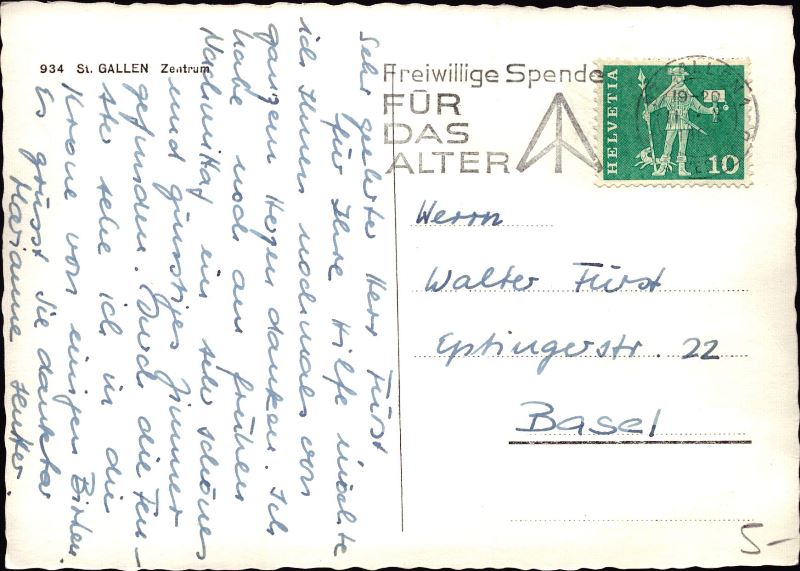 934 St. GALLEN Zentrum
Sehr geehrter Herr Fürst
für Ihre Hilfe möchte
ich Ihnen nochmals von
ganzem Herzen danken. Ich
habe noch am frühen
Nachmittag ein sehr schönes
und günstiges Zimmer
gefunden. Durch die Fen-
ster sehe ich in die
Krone von einigen Birken.
Es grüsst Sie dankbar
Marianne
Freiwillige Spende
FÜR
DAS
ALTER
19-20
HELVETIA
10
Herrn
Walter Fürst
Eptingerstr. 22
Basel
5-